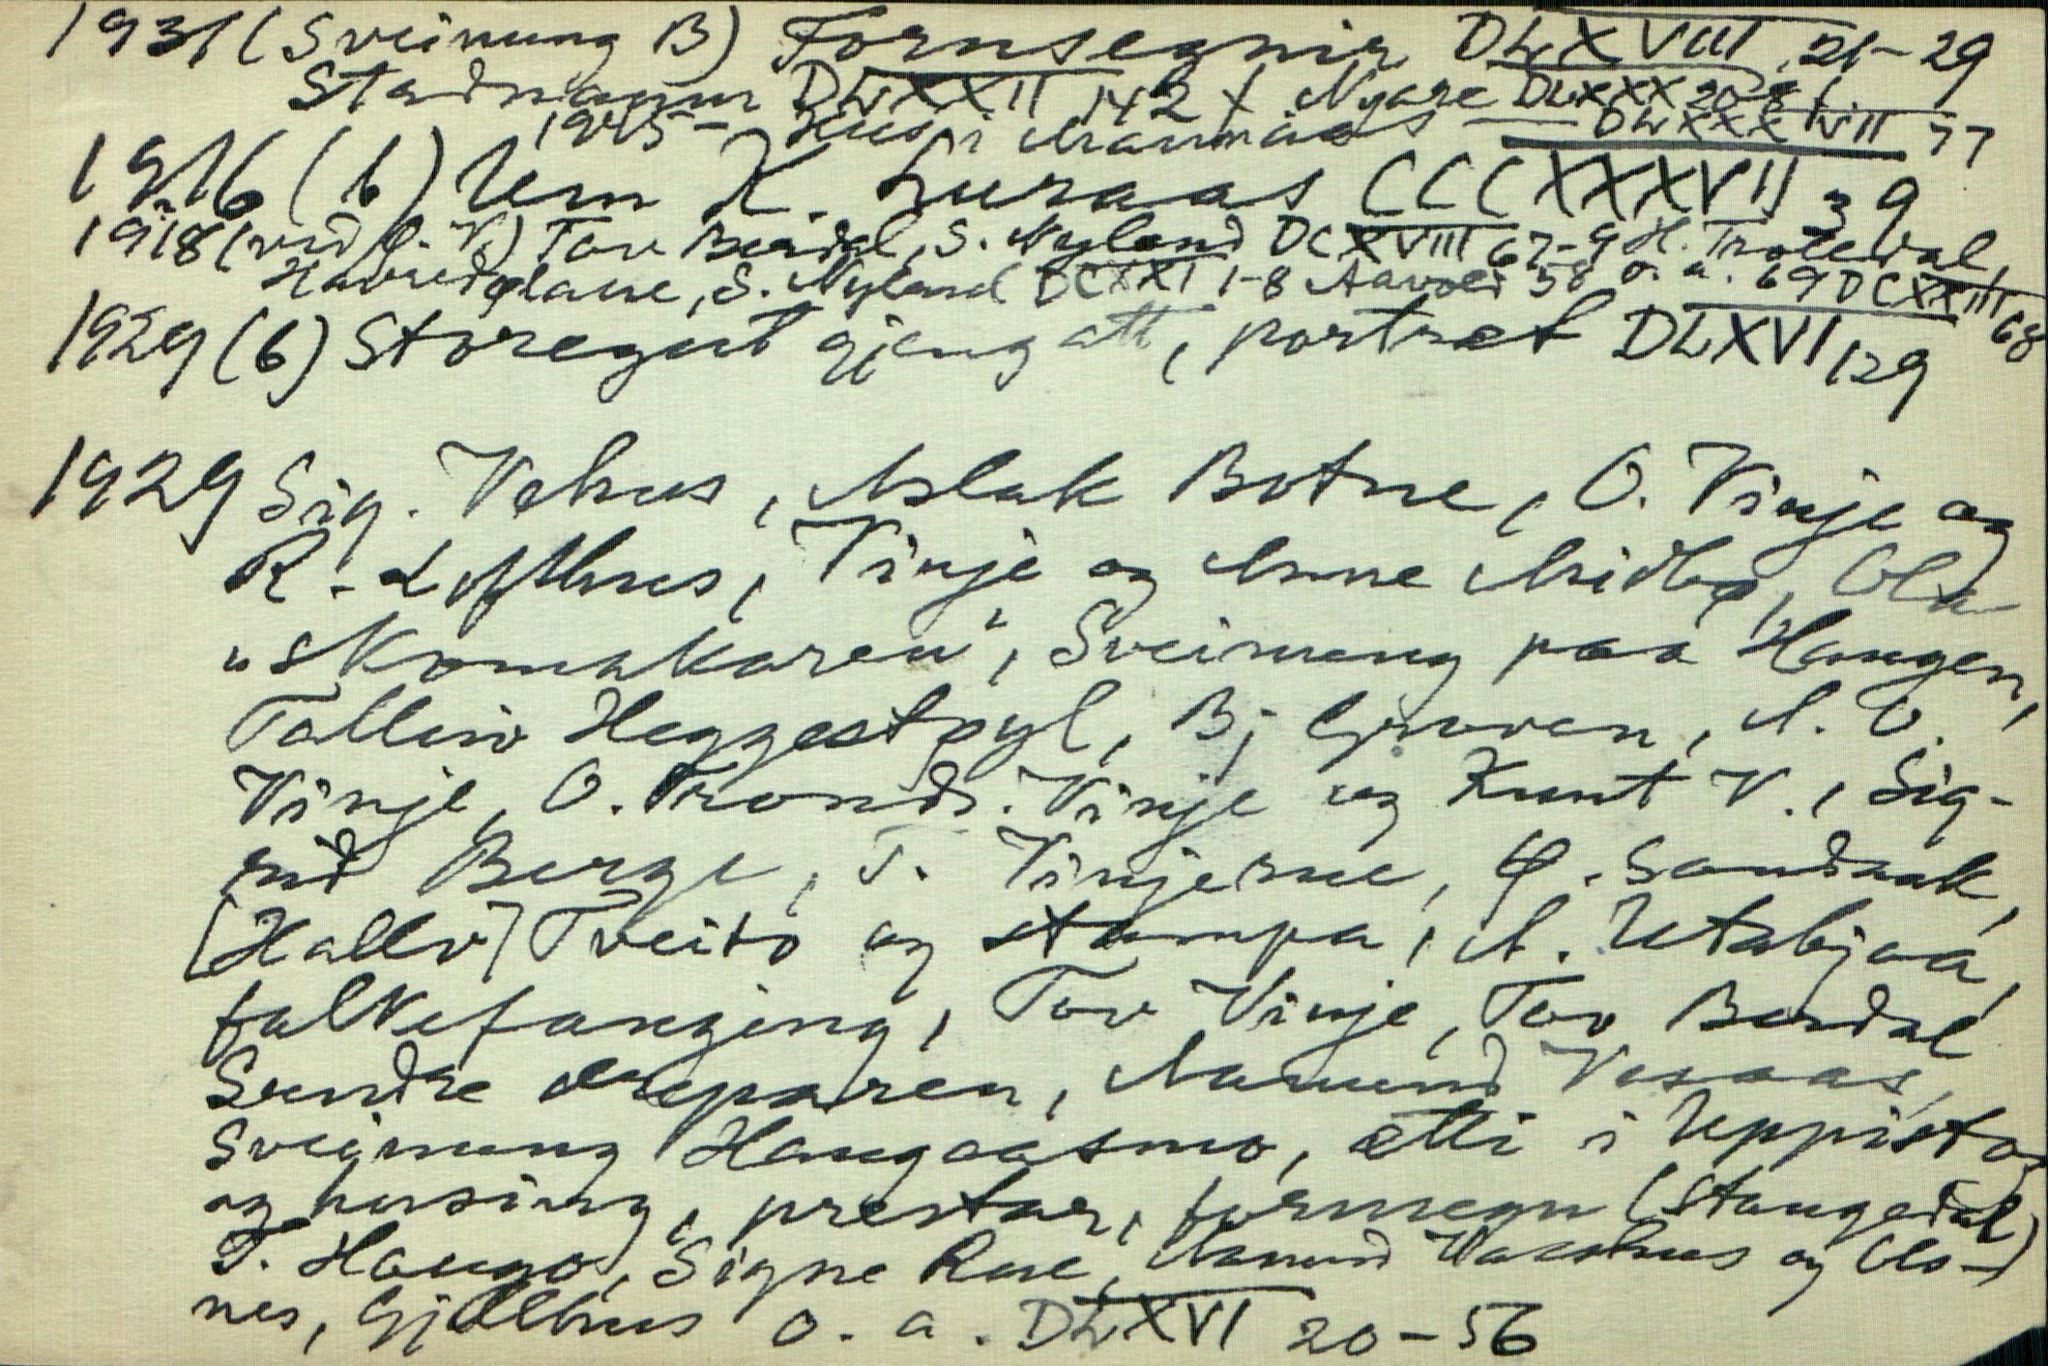 1931 (Sveinung B) Fornsegnir DLXVIII 21-29
Stadnamn DLXXII 142 f Nyare DLXXX 20
1945 - Hus i DLXXXVIII 77
1916 (b) Um K. Luraas CCCXXXVII 39
1918 (ved Ø.V.) Tov Berdal, S. Nyland DCXVIII 67-9 H. Troledal,
S. Nyland DCXXI 1-8 Aavoll 58 o. a. 69 DCXXIII 68
1929 (b) Storegut gjeng att, portræt DLXVI 129
1929 Sig. Vehus, Aslak Botne, O. Vinje og
R. Lofthus, Vinje og Anne Midbø, Ola
"Skomakaren", Sveinung paa Haugen,
Talleiv Heggestøyl, Bj Groven, A. O.
Vinje, O. Tronds. Vinje og Knut V., Sig-
rid Berge, T. Vinjerue, Ø. Sandsak,
[Hallv] Tveito og stampa, A. Utabjaa,
falkefanging, Tov Vinje, Tov Berdal
Sundre Dreparen, Aamund Vesaas,
Sveinung Haugaasmo, ætti i Uppistog
og husing, prestar, fornsegn (Staugedal)
T. Haugo, Signe Rue, Aamund Vaashus og Clo-
nes, Gjellhus o. a. DLXVI 20-56